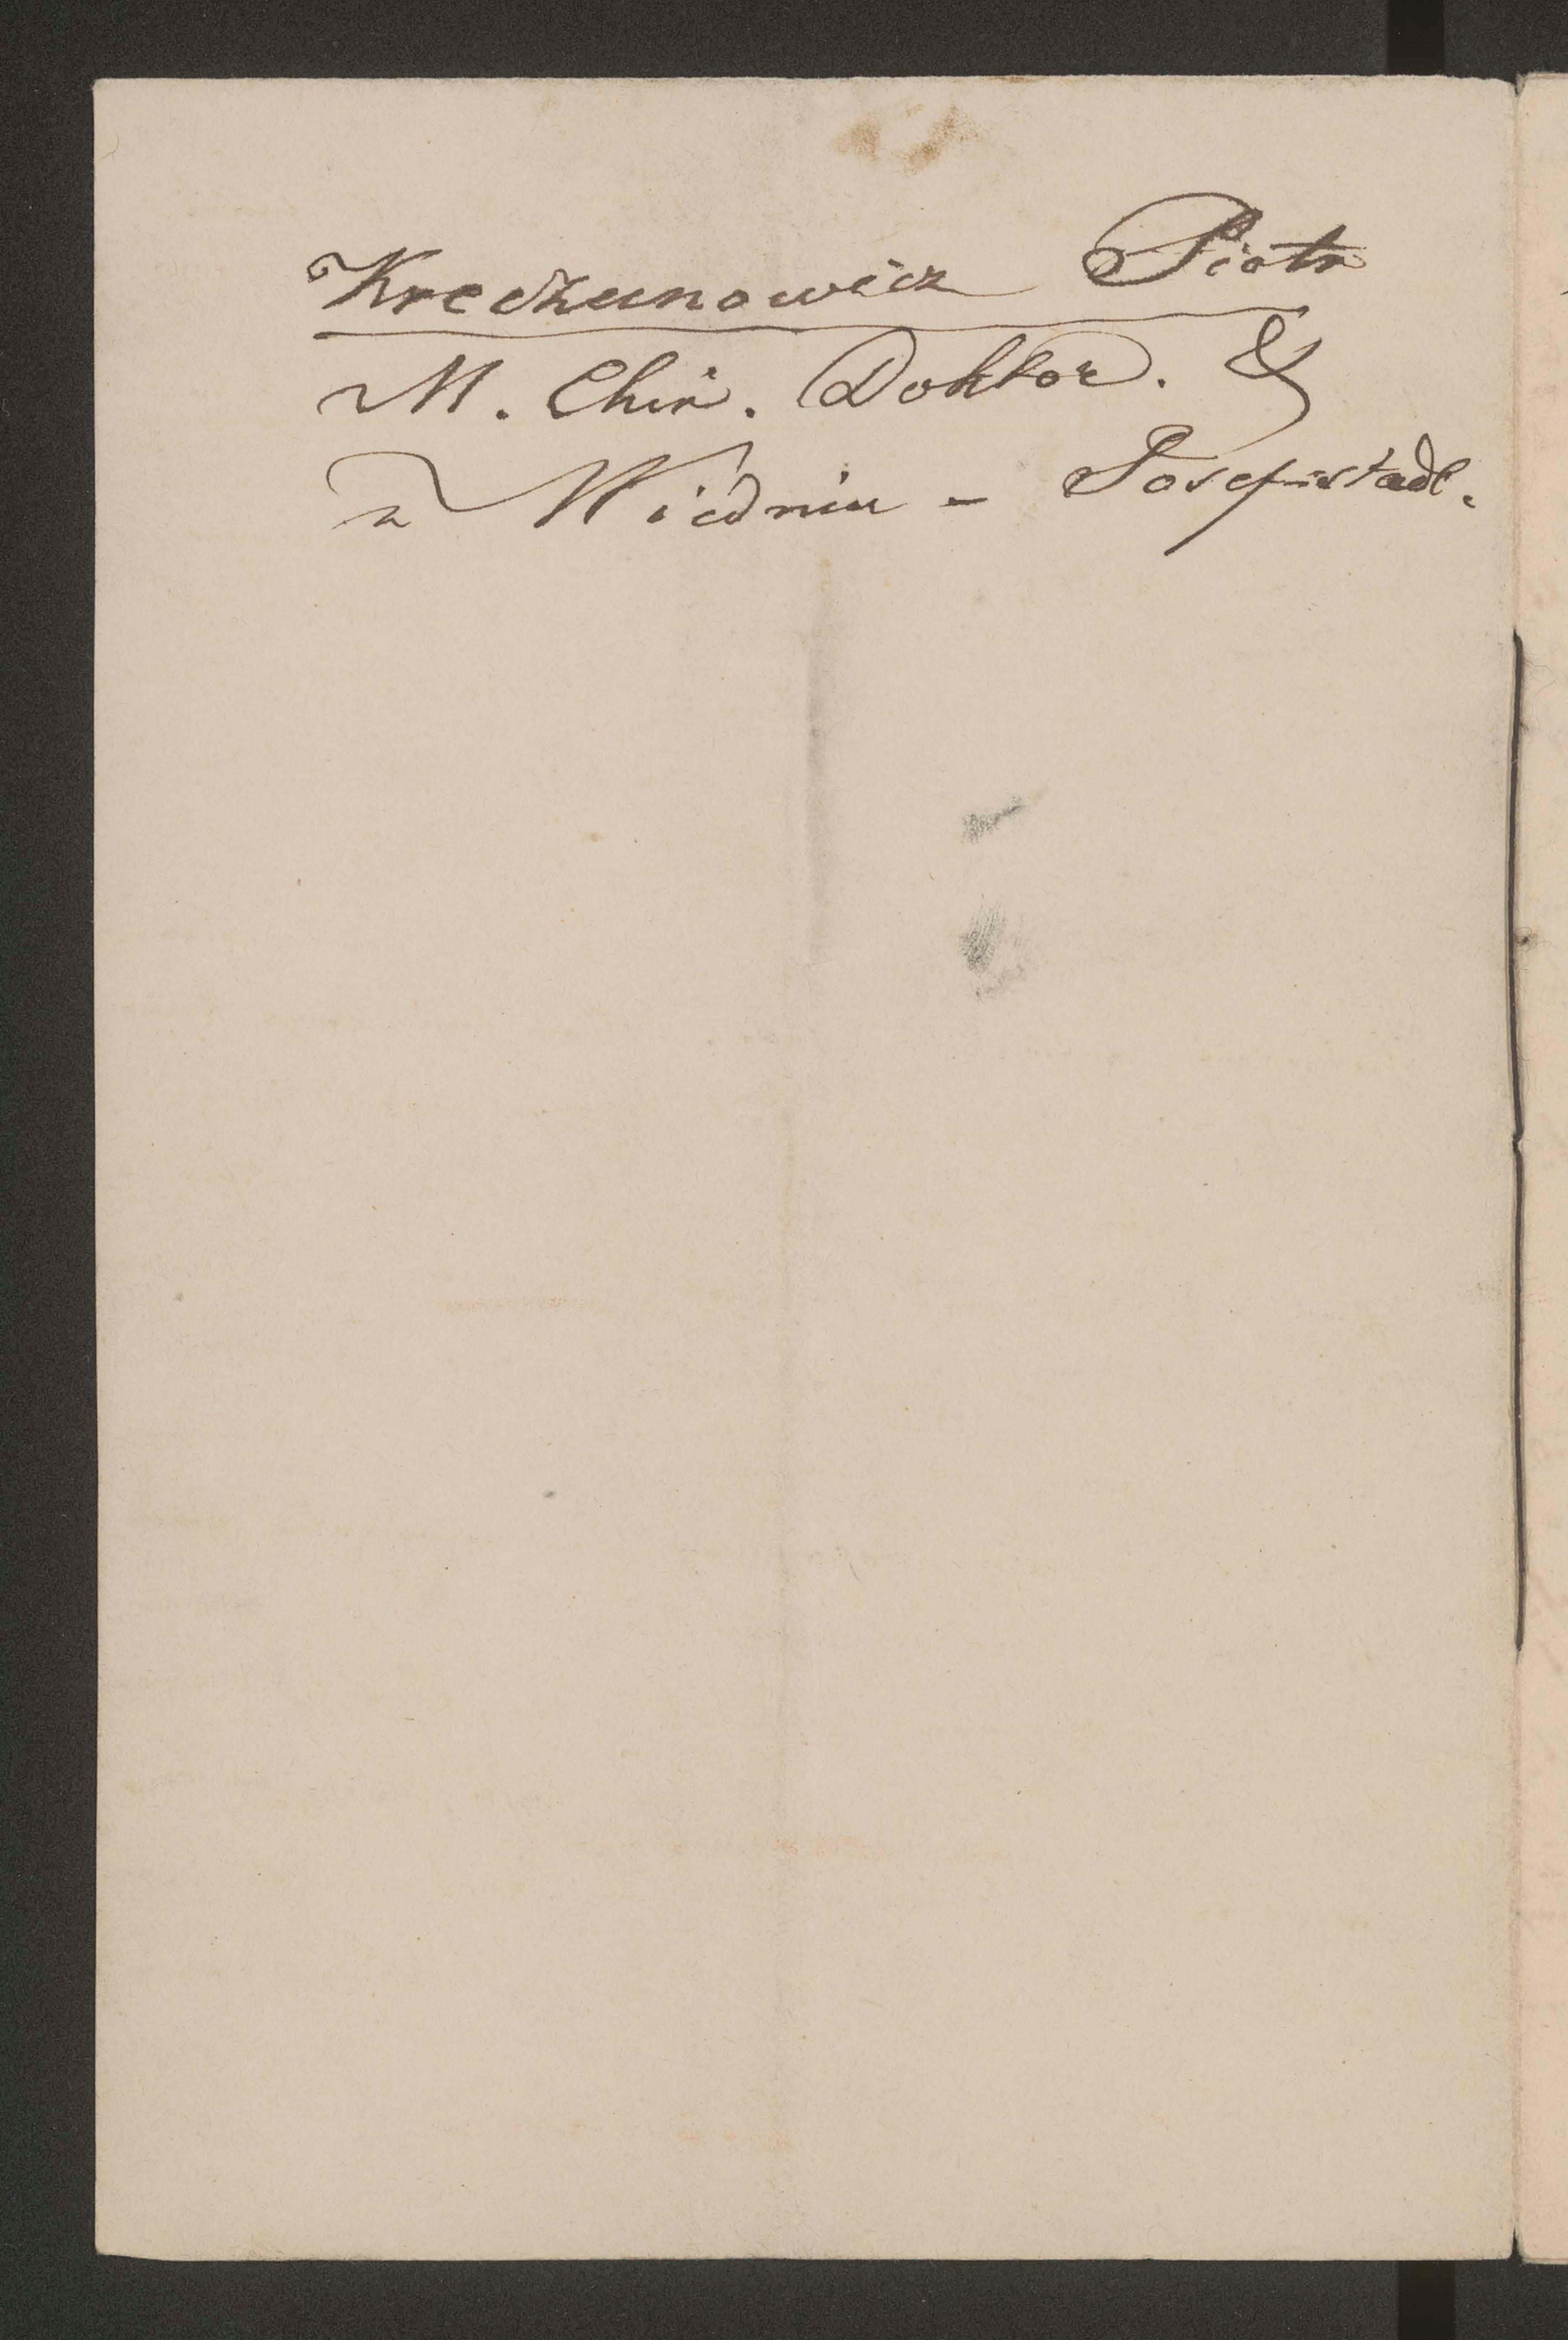 Kreczunowicz Piotr
M. Chir. Doktor. &
w Wiédniu - Josephstadt.